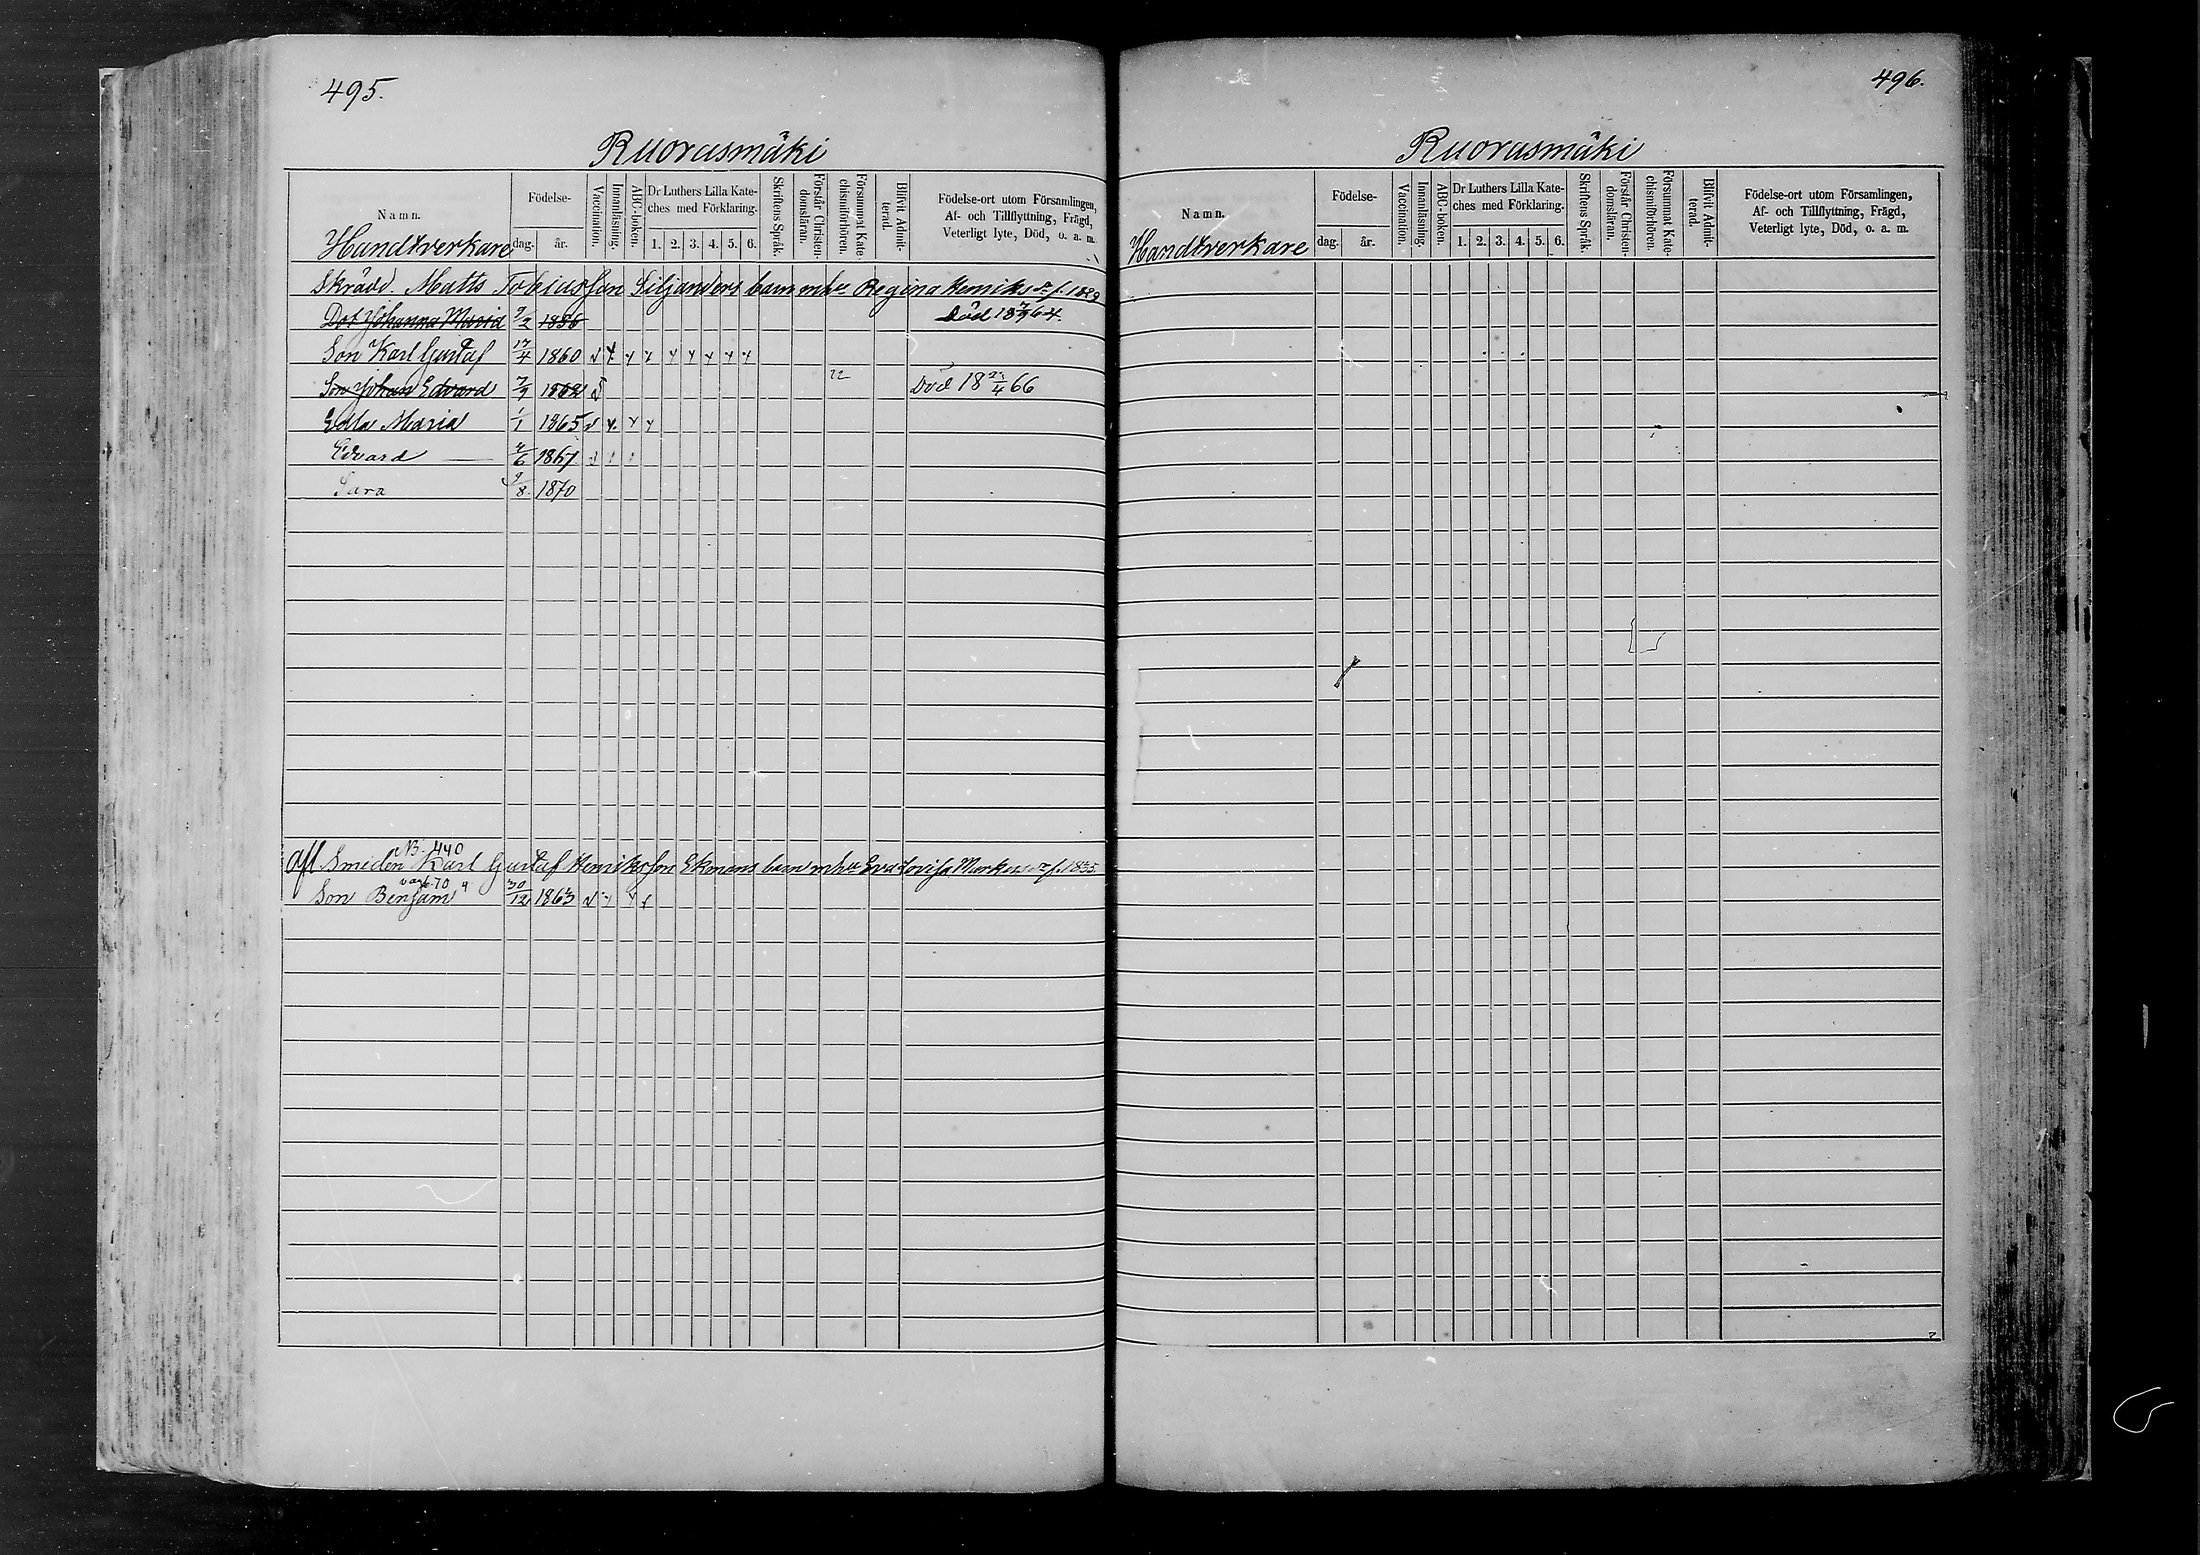 495.
Ruorasmäki
Namn.
Handtverkare
Födelse-
dag.
år.
Vaccination.
Innanläsning.
ABC-boken.
Dr Luthers Lilla Kate-
ches med Förklaring.
1. 2. 3. 4. 5. 6.
Skriftens Språk.
Förstår Christen-
domsläran.
Försummat Kate-
chismiförhören.
Blifvit Admit-
terad.
Födelse-ort utom Församlingen,
Af- och Tillflyttning, Frägd,
Veterligt lyte, Död, o. a. m.
Skrädd. Matts Tobiasson Siljanders barn m h u Regina Henriks dr f. 1829
Dot Johanna Maria 9/2 1856 Död 18 64.
Son Karl Gustaf 17/4 1860
Son Johan Edvard 7/9 1862 Död 18 /4 66
Edla Maria 1/1 1865
Edvard 1867
Sara 9/8 1870
N3. 440
afl Smeden Karl Gustaf Henriksson Ekmans barn m h u Eva Lovisa Markus dr f. 1835.
Son Benjam 30/12 1863
496.
Ruorasmäki
Namn.
Handtverkare
Födelse-
dag.
år.
Vaccination.
Innanläsning.
ABC-boken.
Dr Luthers Lilla Kate-
ches med Förklaring.
1. 2. 3. 4. 5. 6.
Skriftens Språk.
Förstår Christen-
domsläran.
Försummat Kate-
chismiförhören.
Blifvit Admit-
terad.
Födelse-ort utom Församlingen,
Af- och Tillflyttning, Frägd,
Veterligt lyte, Död, o. a. m.